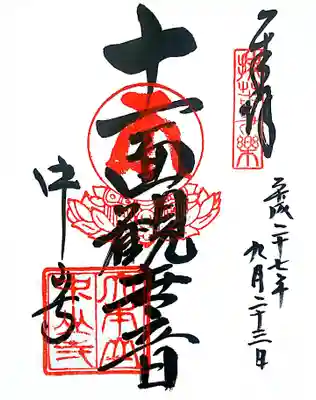 奉拝
平成二十七年
九月二十三日
十一面観世音
中山寺